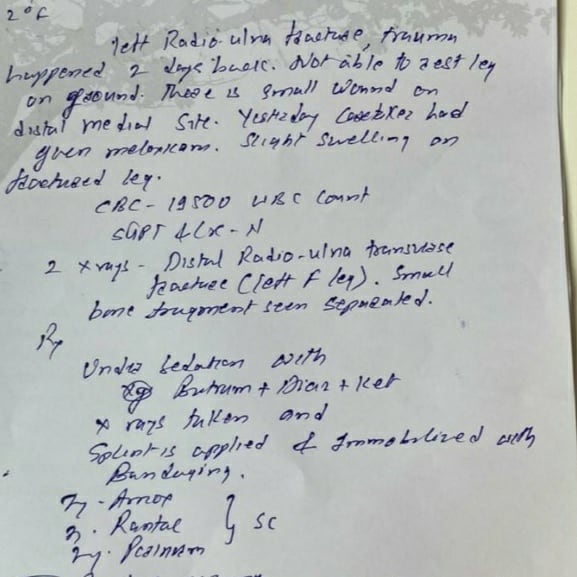 2°F
left Radio-ulna fracture, trauma
happened 2 days back. Not able to rest leg
on ground. There is small wound on
distal medial site. Yesterday had
given meloxicam. Slight swelling on
fractured leg.
CBC - 19500 WBC Count
SGPT & Cr - N
2 X rays - Distal Radio-ulna transverse
fracture (left F leg). Small
bone fragment seen separated.
Rx
Under sedation with
Butrum + Diaz + Ket
X rays taken and
Splint is applied & Immobilized with
Bandaging.
- Amox
- Rantac } SC